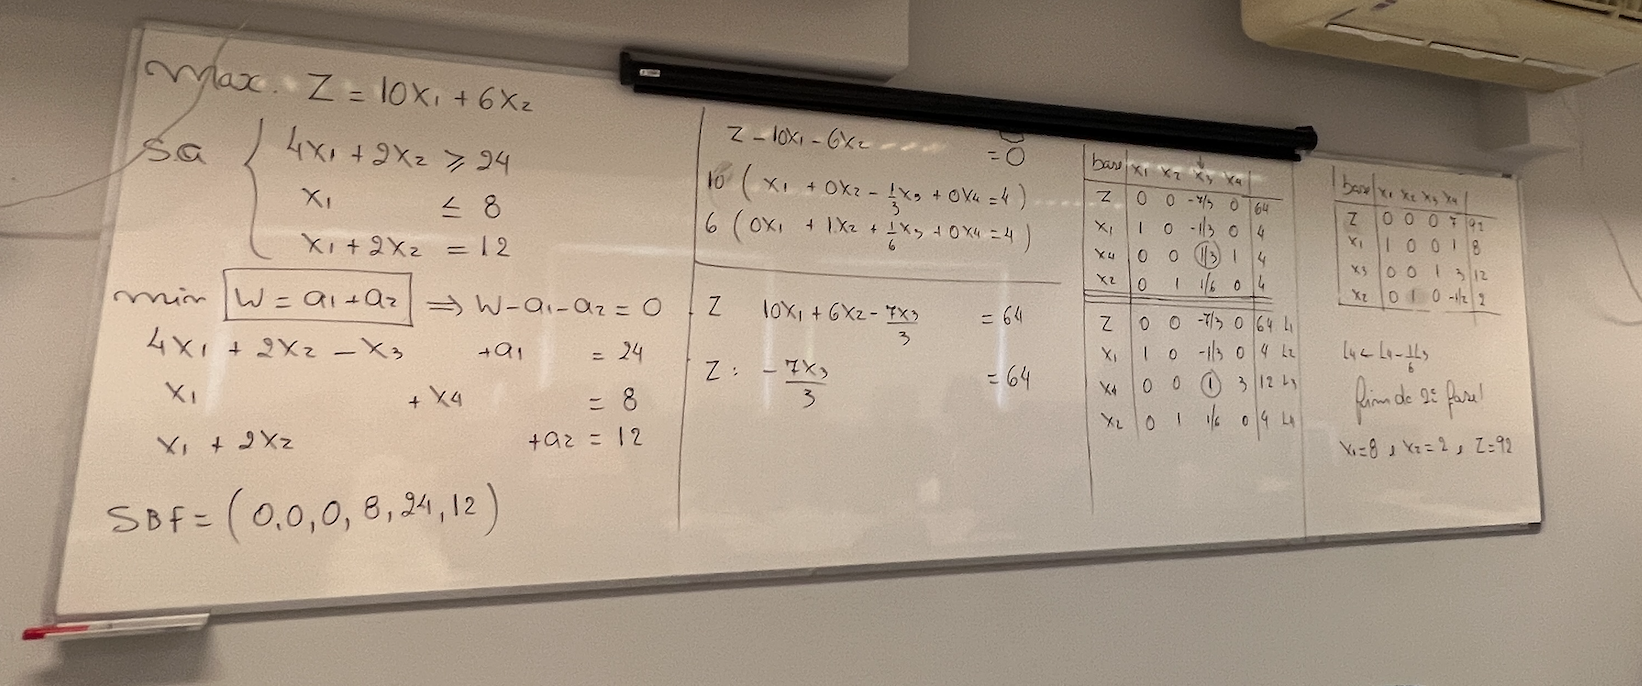 Max. Z = 10x₁ + 6x₂
Sa { 4x₁ + 2x₂ ⩾ 24
x₁ ≤ 8
x₁ + 2x₂ = 12
min W = a₁ + a₂ ⇒ W - a₁ - a₂ = 0
4x₁ + 2x₂ - x₃ + a₁ = 24
x₁ + x₄ = 8
x₁ + 2x₂ + a₂ = 12
SBF = (0,0,0,8,24,12)
Z - 10x₁ - 6x₂ = 0
10 (x₁ + 0x₂ - 1/3 x₃ + 0x₄ = 4)
6 (0x₁ + 1x₂ + 1/6 x₃ + 0x₄ = 4)
Z 10x₁ + 6x₂ - 7x₃/3 = 64
Z: - 7x₃/3 = 64
base x₁ x₂ x₃ x₄
Z 0 0 -7/3 0 64
x₁ 1 0 -1/3 0 4
x₄ 0 0 1/3 1 4
x₂ 0 1 1/6 0 4
Z 0 0 -7/3 0 64 L₁
x₁ 1 0 -1/3 0 4 L₂
x₄ 0 0 1 3 12 L₃
x₂ 0 1 1/6 0 4 L₄
base x₁ x₂ x₃ x₄
Z 0 0 0 7 92
x₁ 1 0 0 1 8
x₃ 0 0 1 3 12
x₂ 0 1 0 -1/2 2
L₄ ← L₄ - 1/6 L₃
fim de 2ª fase!
x₁=8, x₂=2, Z=92